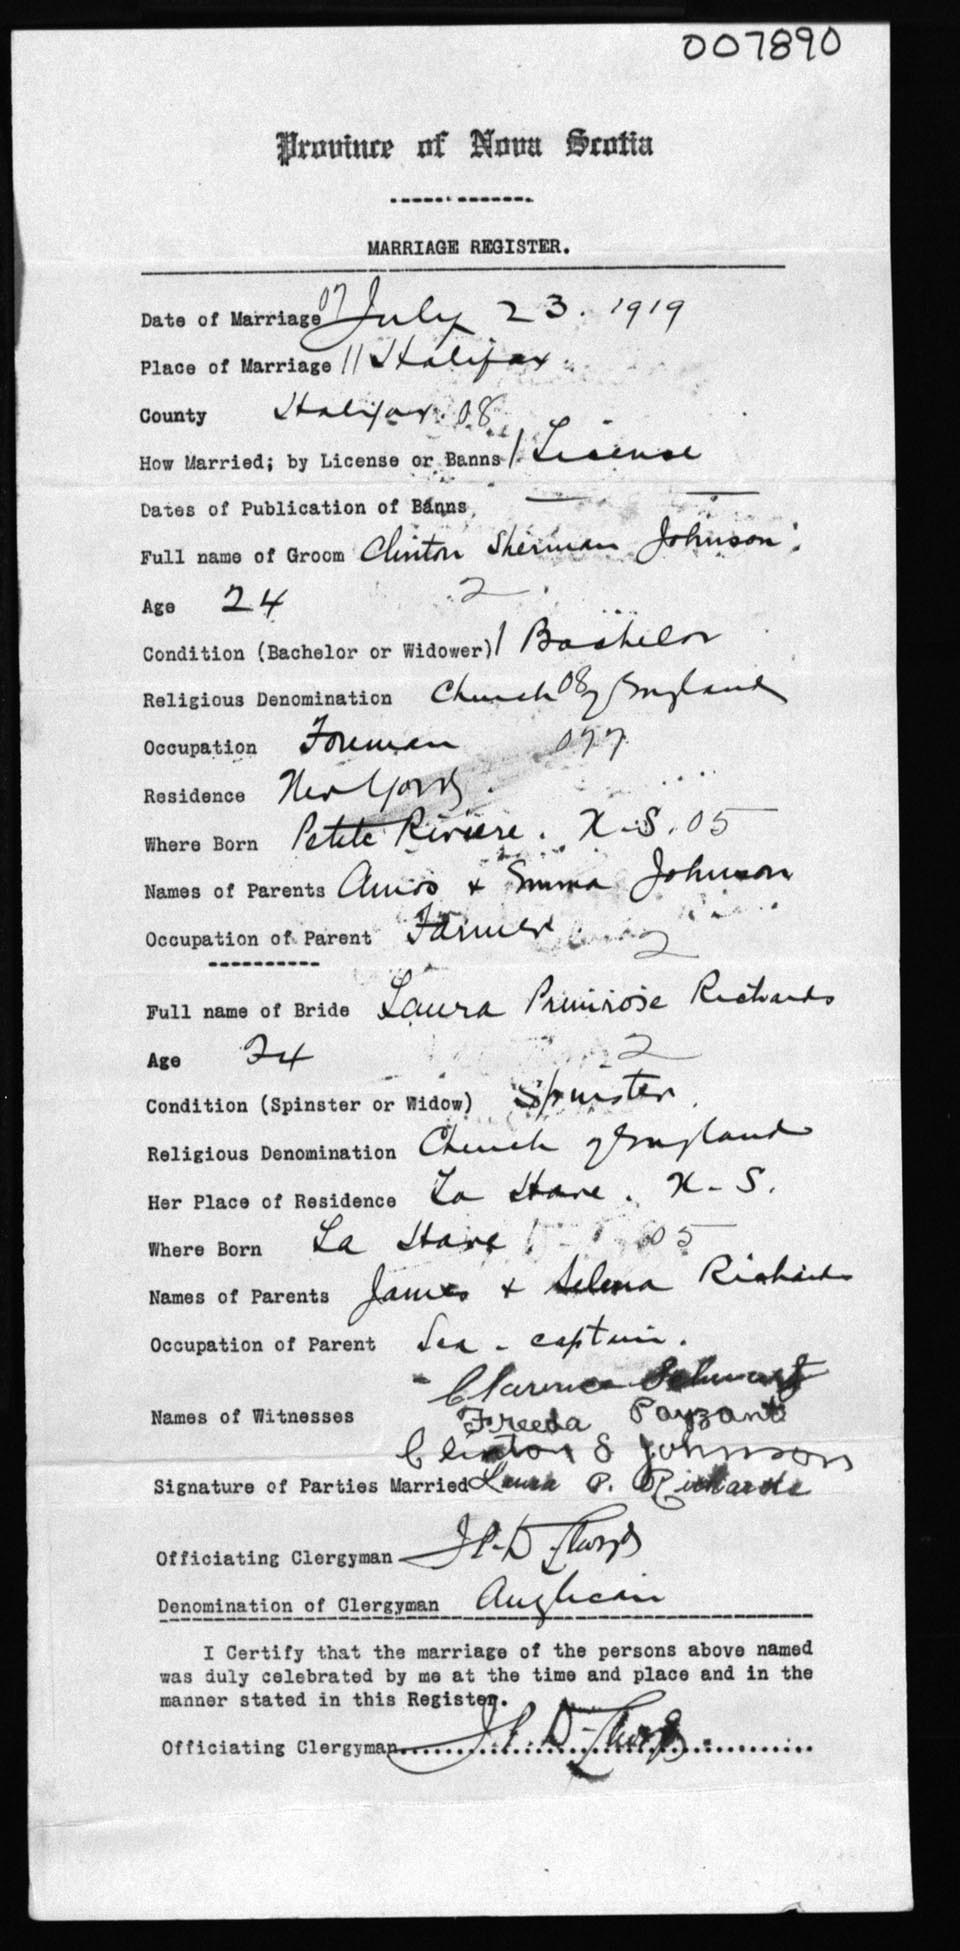 007890
Province of Nova Scotia
MARRIAGE REGISTER.
Date of Marriage 07 July 23. 1919
Place of Marriage 11 Halifax.
County Halifax. 08
How Married; by License or Banns / License
Dates of Publication of Banns — —
Full name of Groom Clinton Sherman Johnson.
Age 24 2
Condition (Bachelor or Widower) 1 Bachelor
Religious Denomination Church 08 of England
Occupation Foreman 077
Residence New York.
Where Born Petite Riviere. N.S. 05
Names of Parents Amos + Emma Johnson
Occupation of Parent Farmer 2
Full name of Bride Laura Primrose Richards
Age 24 2
Condition (Spinster or Widow) Spinster.
Religious Denomination Church of England
Her Place of Residence La Have. N-S.
Where Born La Have 05
Names of Parents James + Selena Richards
Occupation of Parent Sea-captain.
Clarence Schwartz
Names of Witnesses Freeda Payzant
Clinton S Johnson
Signature of Parties Married Laura P. Richards
Officiating Clergyman
Denomination of Clergyman Anglican
I Certify that the marriage of the persons above named
was duly celebrated by me at the time and place and in the
manner stated in this Register.
Officiating Clergyman